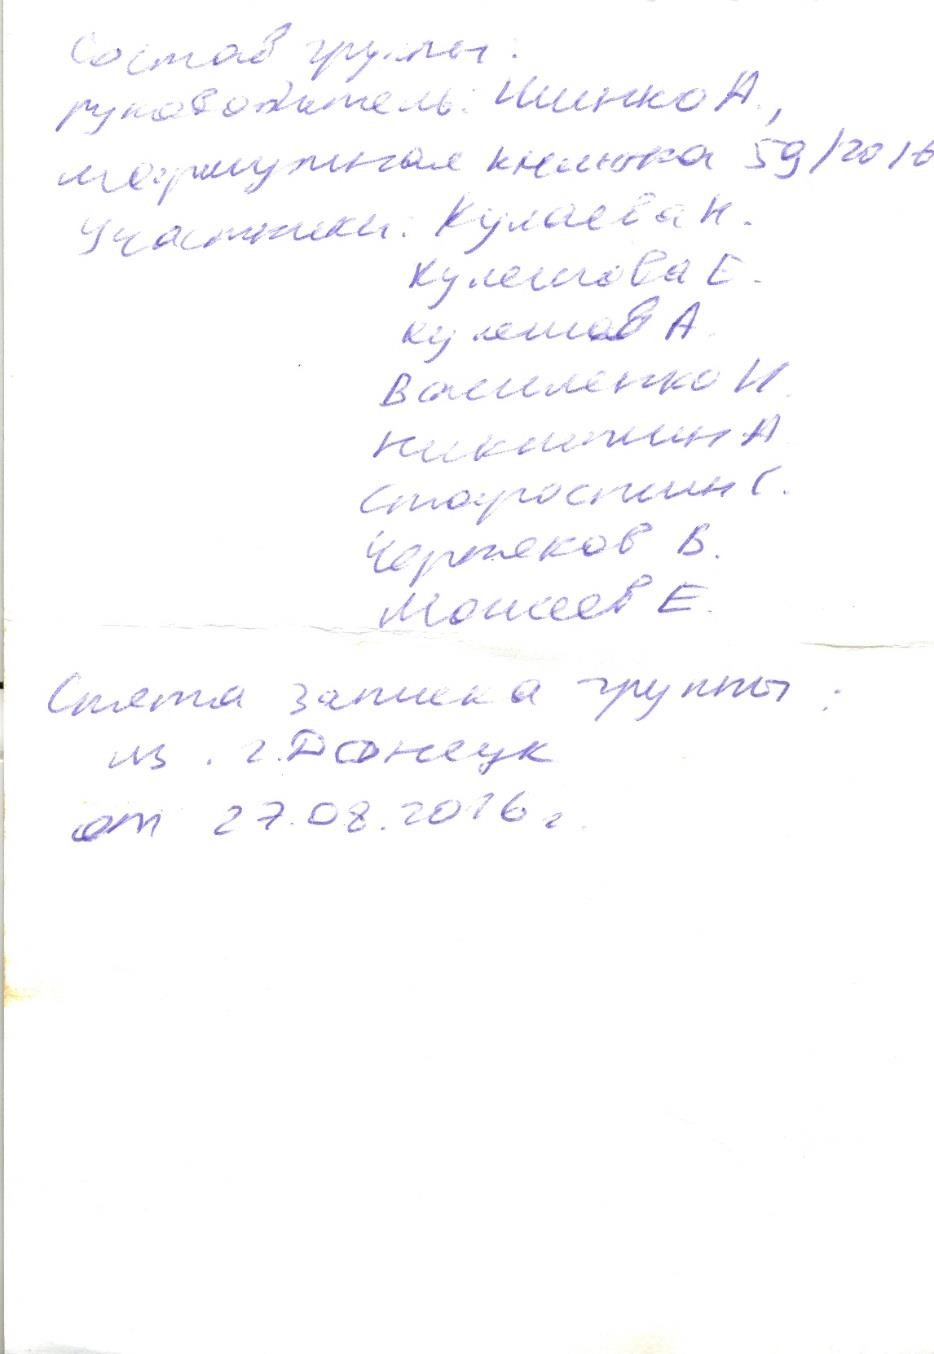 Состав группы:
руководитель: А.,
маршрутная книжка 59/2016
Участники: Кулаева Н.
Кулешова Е.
Кулешов А.
Василенко И.
Никитин А.
Старостин Г.
Чертеков В.
Моисеев Е.
Снята записка группы:
из г. Донецк
от 27.08.2016 г.